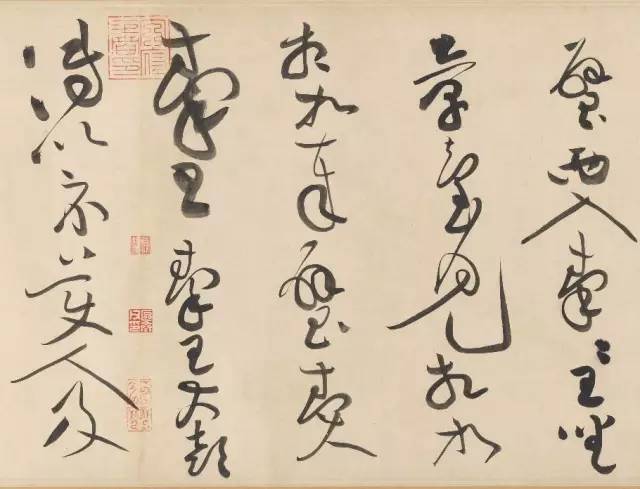 璧西入秦〻王坐
章臺見相如
相如奉璧奏
秦王秦王大喜
傳以示美人及